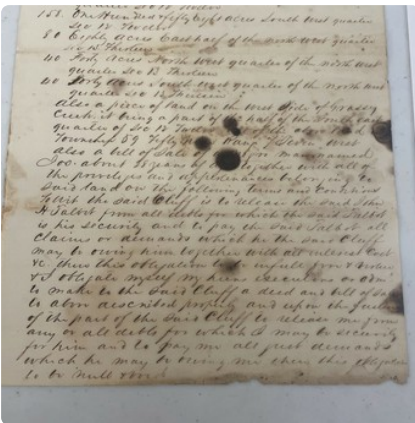 Sec 12 Twelve
158. One Hundred fifty Eight acres South West quarter
Sec 12 Twelve
80 Eighty Acres East half of the north west quarter
Sec 13 Thirteen
40 Forty Acres North West quarter of the north west
quarter Sec 13 Thirteen
40 Forty Acres South West quarter of the north West
quarter Sec 13 Thirteen
Also a piece of land on the West Side of Grassy
Creek it being a part of the half of the South East
quarter of Sec 12 Twelve of the above
Township 59 Fifty Range 7 Seven West
also a bill of Sale for man named
Joe about years together with all
the priviliges and appurtenances belonging to
said land on the following terms and Conditions
to Wit the said Cluff is to release the said John
H Talbot from all debts for which the said Talbot
is his security and to pay the said Talbot all
Claims or demands which he the said Cluff
may be owing him together with all interest Cost
&c. then this obligation to be in full force
& I obligate myself my heirs executors or adm
to make to the said Cluff a deed and bill of Sale
to above described property and upon the failure
of the part of the said Cluff to release me from
any or all debts for which I may be security
for him and to pay me all just demands
which he may be owing me then this obligation
to be null & void